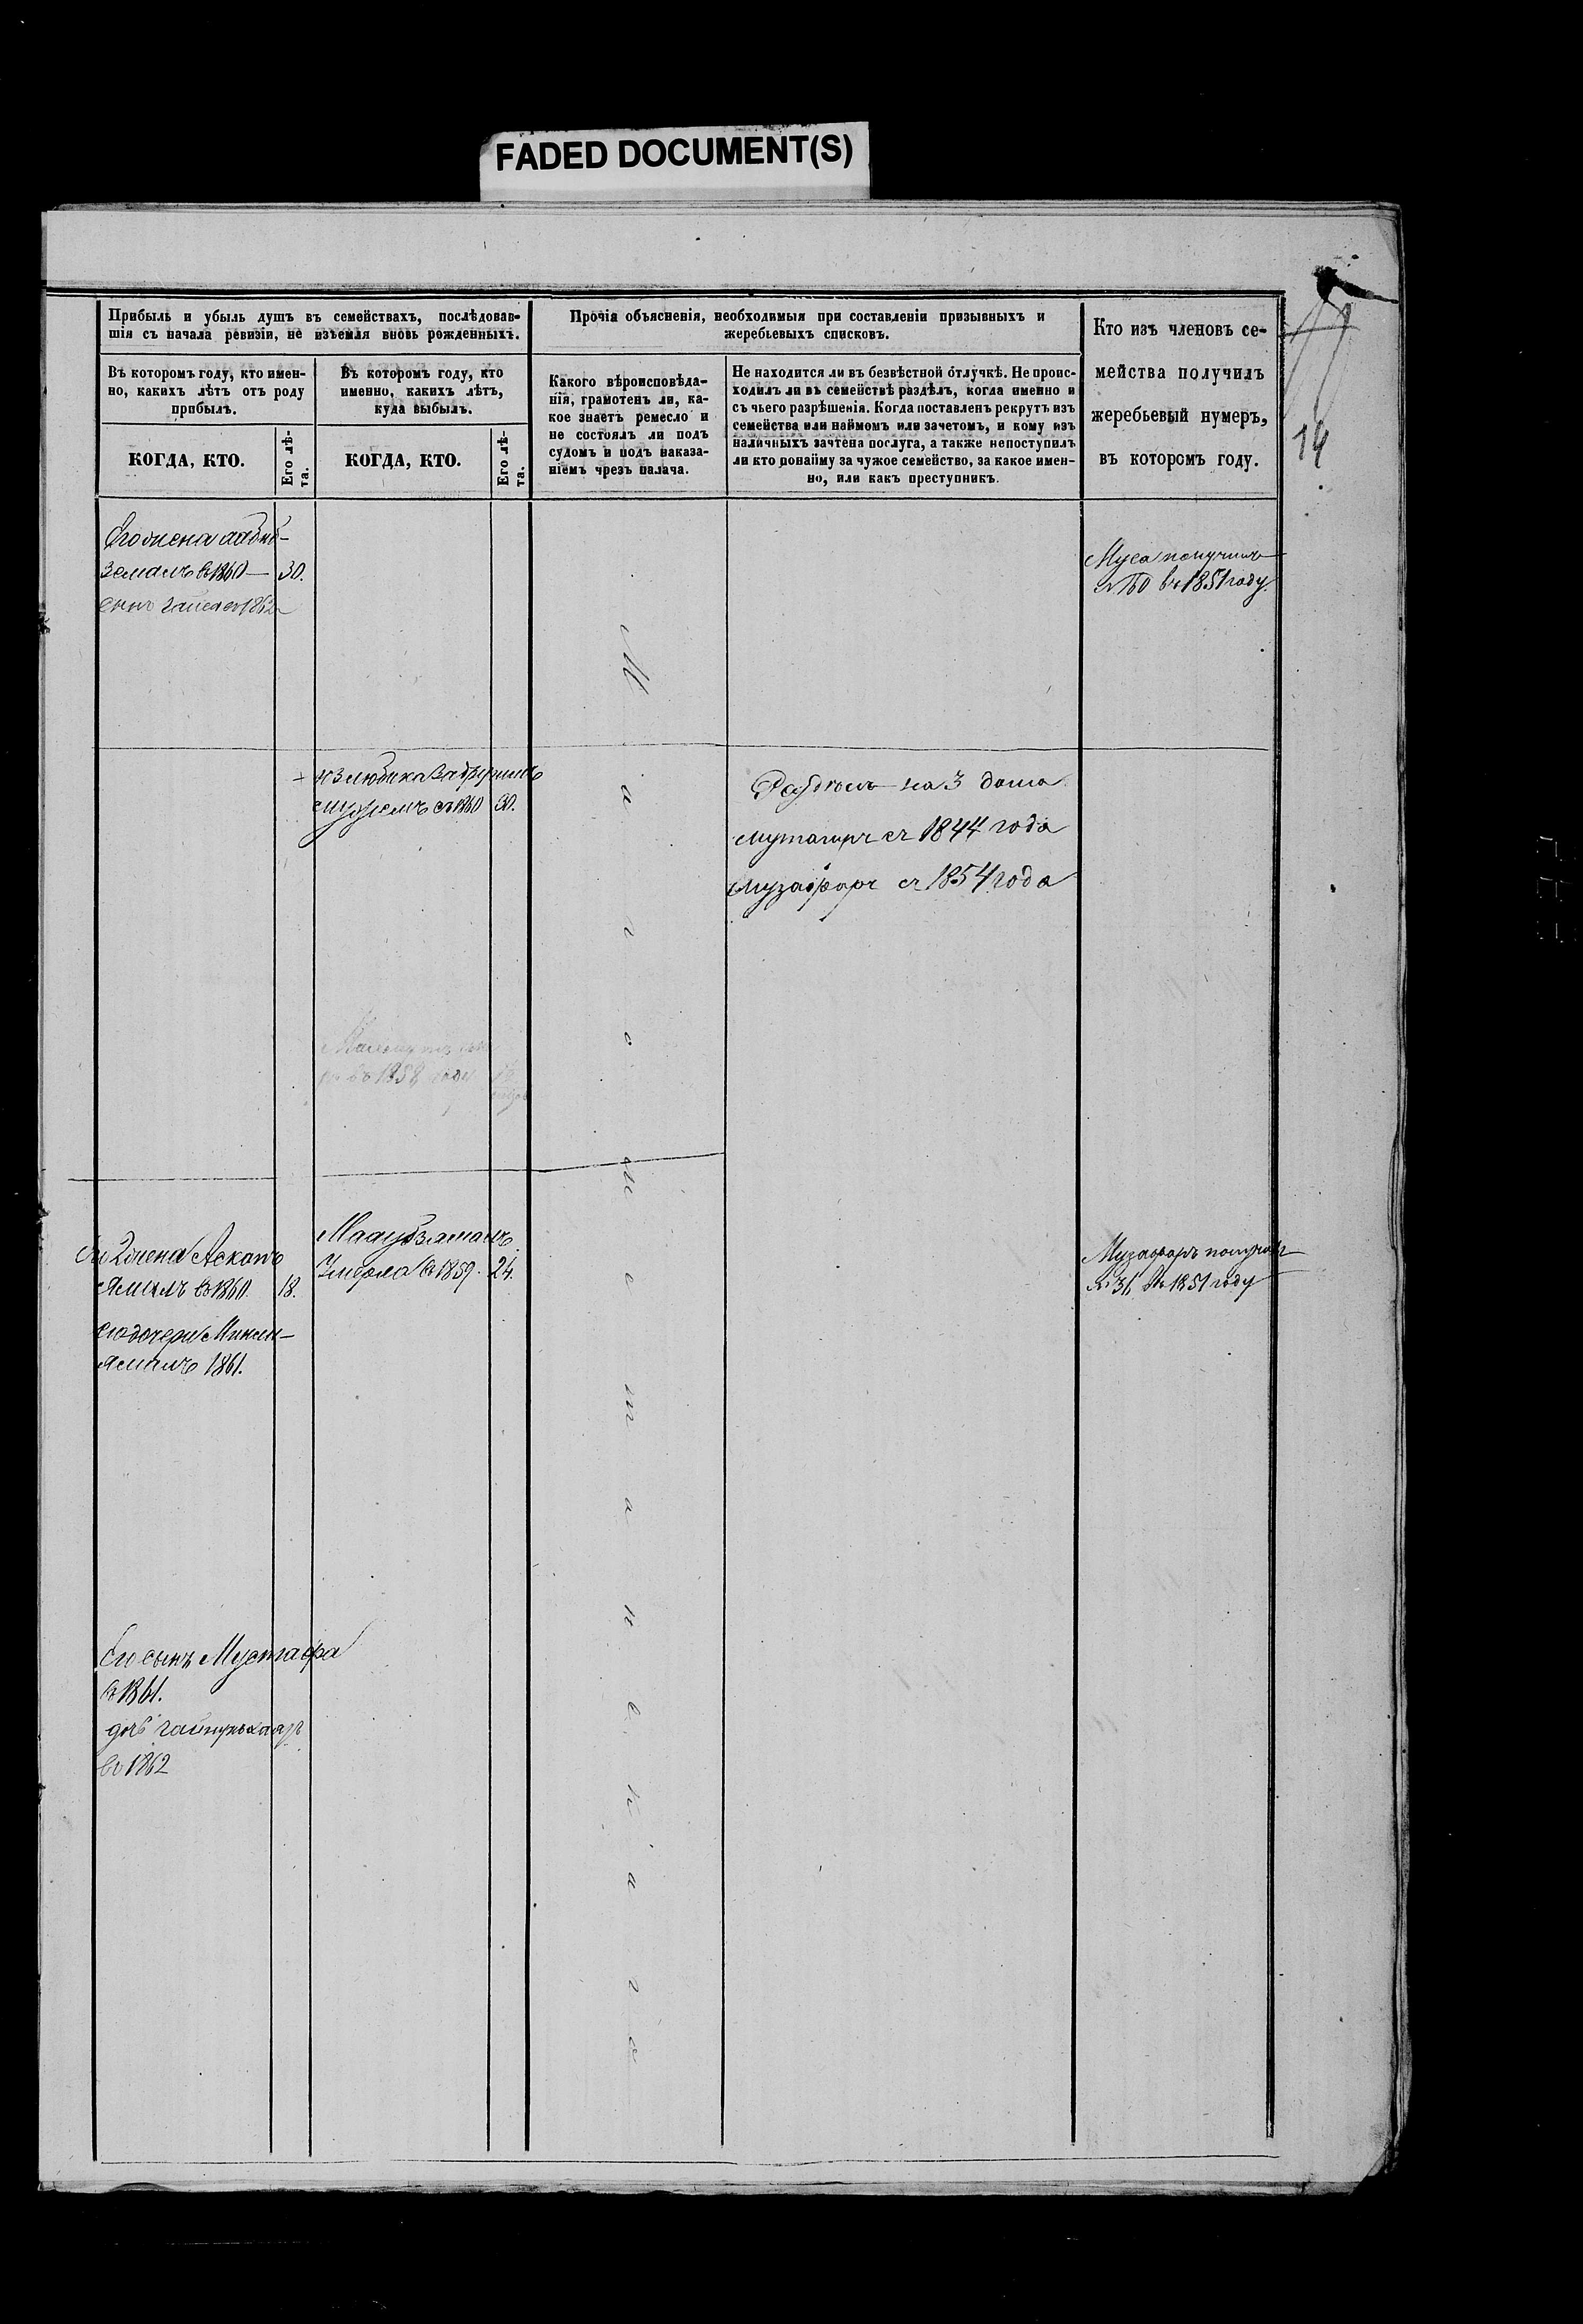 FADED DOCUMENT(S)
Прибыль и убыль душъ въ семействахъ, послѣдовав-
шія съ начала ревизіи, не изъемля вновь рожденныхъ.
Прочія объясненія, необходимыя при составленіи призывныхъ и
жеребьевыхъ списковъ.
Кто изъ членовъ се-
мейства получилъ
жеребьевый нумеръ,
въ которомъ году.
14
Въ которомъ году, кто имен-
но, какихъ лѣтъ отъ роду
прибылъ.
Въ которомъ году, кто
именно, какихъ лѣтъ,
куда выбылъ.
Какого вѣроисповѣда-
нія, грамотенъ ли, ка-
кое знаетъ ремесло и
не состоялъ ли подъ
судомъ и подъ наказа-
ніемъ чрезъ палача.
Не находится ли въ безвѣстной отлучкѣ. Не проис-
ходилъ ли въ семействѣ раздѣлъ, когда именно и
съ чьего разрѣшенія. Когда поставленъ рекрутъ изъ
семейства или наймомъ или зачетомъ, и кому изъ
наличныхъ зачтена послуга, а также непоступилъ
ли кто понайму за чужое семейство, за какое имен-
но, или какъ преступникъ.
КОГДА, КТО.
Его лѣ-
та.
КОГДА, КТО.
Его лѣ-
та.
Его жена
въ 1860 30.
1862
Муса получилъ
№ 160 въ 1851 году.
замужемъ съ 1860 30.
Раздѣлъ на 3 дома
Мутагиръ съ 1844 года
Музафаръ съ 1854 года
въ 1858 году
Магометанскаго
Его 2 жена
въ 1860 18.
его дочери
1861.
Умерла въ 1859. 24.
Музафаръ получилъ
№ 31 въ 1851 году
Его сынъ Мустафа
въ 1861.
дочь
въ 1862